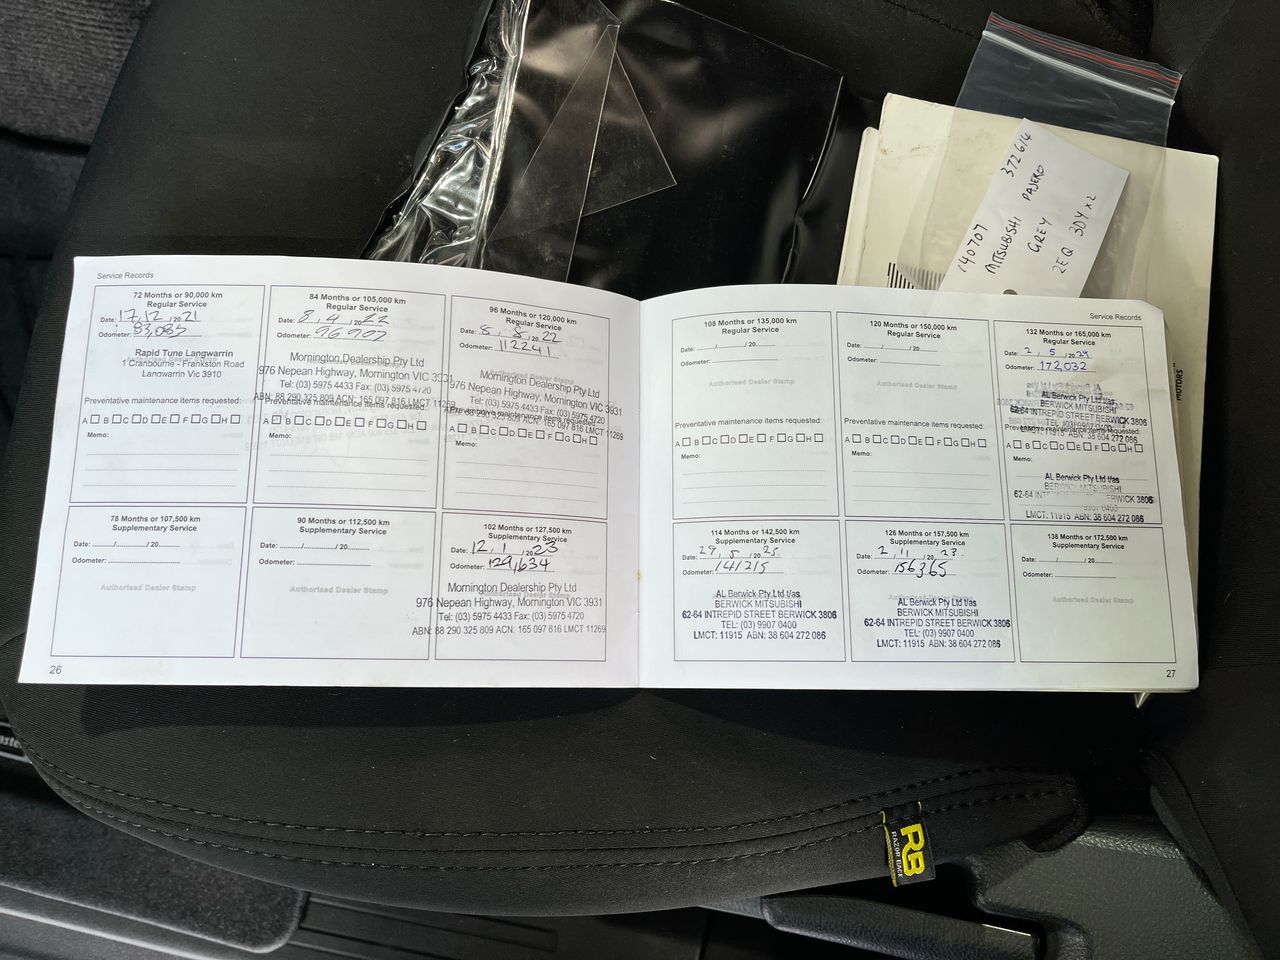 140707 372614
MITSUBISHI PAJERO
GREY
2EQ 3DY x 2
MOTORS
Service Records
72 Months or 90,000 km
Regular Service
Date: 17/12/2021
Odometer: 93,085
Rapid Tune Langwarrin
1 Cranbourne - Frankston Road
Langwarrin Vic 3910
Preventative maintenance items requested:
A B C D E F G H
Memo:
84 Months or 105,000 km
Regular Service
Date: 8/4/2022
Odometer: 96902
Mornington Dealership Pty Ltd
976 Nepean Highway, Mornington VIC 3931
Tel: (03) 5975 4433 Fax: (03) 5975 4720
ABN: 88 290 325 809 ACN: 165 097 816 LMCT 11269
Preventative maintenance items requested:
A B C D E F G H
Memo:
96 Months or 120,000 km
Regular Service
Date: 8/8/2022
Odometer: 112241
Mornington Dealership Pty Ltd
976 Nepean Highway, Mornington VIC 3931
Tel: (03) 5975 4433 Fax: (03) 5975 4720
ABN: 88 290 325 809 ACN: 165 097 816 LMCT 11269
Preventative maintenance items requested:
A B C D E F G H
Memo:
78 Months or 107,500 km
Supplementary Service
Date: ....../....../ 20......
Odometer:
Authorised Dealer Stamp
90 Months or 112,500 km
Supplementary Service
Date: ....../....../ 20......
Odometer:
Authorised Dealer Stamp
102 Months or 127,500 km
Supplementary Service
Date: 12/1/2023
Odometer: 129,634
Mornington Dealership Pty Ltd
976 Nepean Highway, Mornington VIC 3931
Tel: (03) 5975 4433 Fax: (03) 5975 4720
ABN: 88 290 325 809 ACN: 165 097 816 LMCT 11269
26
Service Records
108 Months or 135,000 km
Regular Service
Date: ....../....../ 20......
Odometer:
Authorised Dealer Stamp
Preventative maintenance items requested:
A B C D E F G H
Memo:
120 Months or 150,000 km
Regular Service
Date: ....../....../ 20......
Odometer:
Authorised Dealer Stamp
Preventative maintenance items requested:
A B C D E F G H
Memo:
132 Months or 165,000 km
Regular Service
Date: 2/5/2024
Odometer: 172,032
AL Berwick Pty Ltd t/as
BERWICK MITSUBISHI
62-64 INTREPID STREET BERWICK 3806
TEL: (03) 9907 0400
LMCT: 11915 ABN: 38 604 272 086
Preventative maintenance items requested:
A B C D E F G H
Memo:
AL Berwick Pty Ltd t/as
BERWICK MITSUBISHI
BERWICK 3806
LMCT: 11915 ABN: 38 604 272 086
114 Months or 142,500 km
Supplementary Service
Date: 29/5/2023
Odometer: 141215
AL Berwick Pty Ltd t/as
BERWICK MITSUBISHI
62-64 INTREPID STREET BERWICK 3806
TEL: (03) 9907 0400
LMCT: 11915 ABN: 38 604 272 086
126 Months or 157,500 km
Supplementary Service
Date: 2/11/2023
Odometer: 156365
AL Berwick Pty Ltd t/as
BERWICK MITSUBISHI
62-64 INTREPID STREET BERWICK 3806
TEL: (03) 9907 0400
LMCT: 11915 ABN: 38 604 272 086
138 Months or 172,500 km
Supplementary Service
Date: ....../....../ 20......
Odometer:
Authorised Dealer Stamp
27
RB
RAZOR BACK